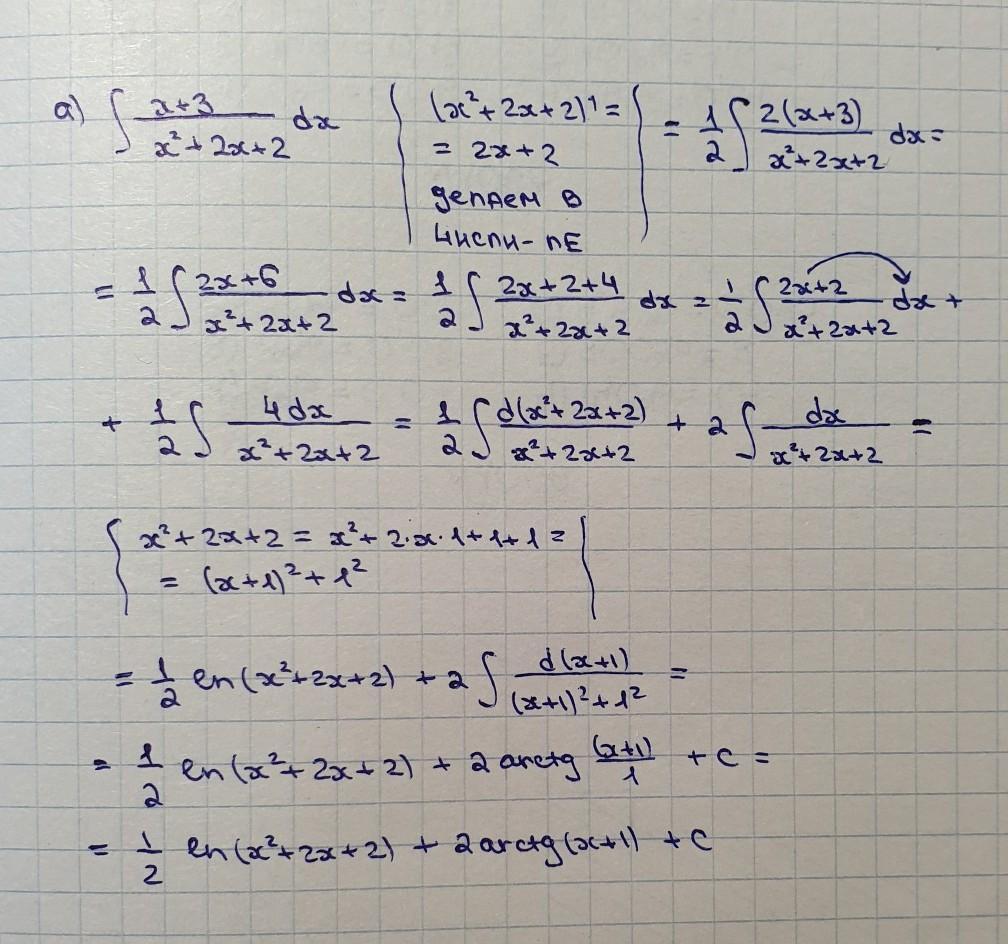 a) ∫ (x+3)/(x²+2x+2) dx { (x²+2x+2)' = = 2x+2 делаем в числи-ле } = 1/2 ∫ 2(x+3)/(x²+2x+2) dx =
= 1/2 ∫ (2x+6)/(x²+2x+2) dx = 1/2 ∫ (2x+2+4)/(x²+2x+2) dx = 1/2 ∫ (2x+2)/(x²+2x+2) dx +
+ 1/2 ∫ 4dx/(x²+2x+2) = 1/2 ∫ d(x²+2x+2)/(x²+2x+2) + 2 ∫ dx/(x²+2x+2) =
{ x²+2x+2 = x²+2·x·1+1+1 =
= (x+1)²+1² }
= 1/2 ln(x²+2x+2) + 2 ∫ d(x+1)/((x+1)²+1²) =
= 1/2 ln(x²+2x+2) + 2 arctg (x+1)/1 + c =
= 1/2 ln(x²+2x+2) + 2 arctg(x+1) + c